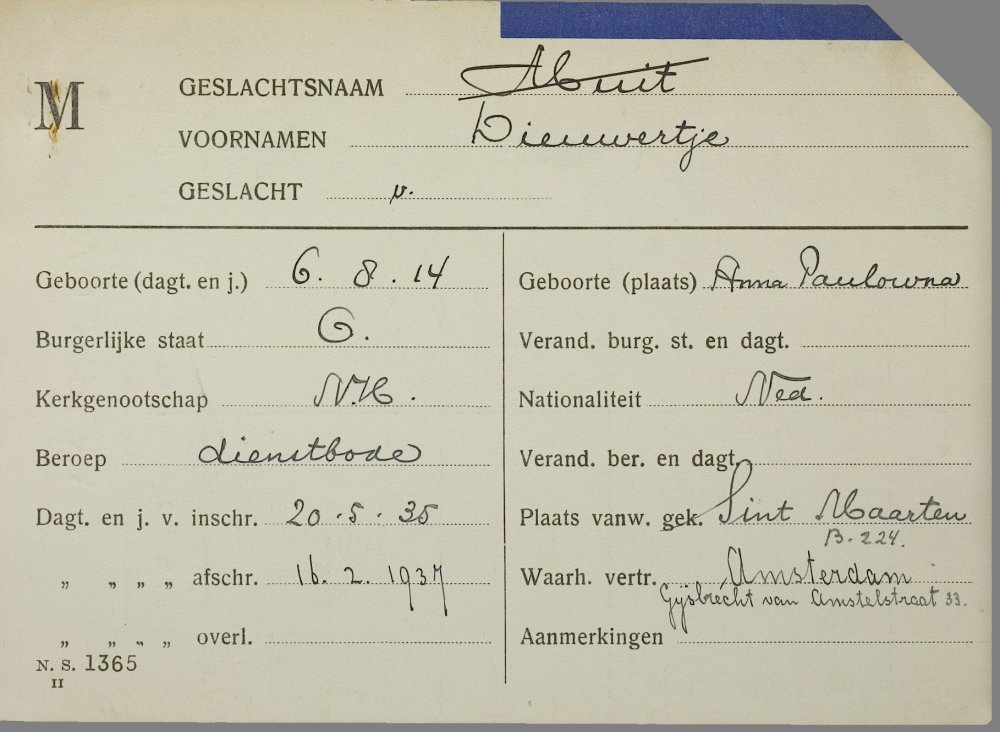 M
GESLACHTSNAAM Muit
VOORNAMEN Dieuwertje
GESLACHT v.
Geboorte (dagt. en j.) 6. 8. 14
Burgerlijke staat O.
Kerkgenootschap N.H.
Beroep dienstbode
Dagt. en j. v. inschr. 20-5-35
„ „ „ „ afschr. 16.2.1937
„ „ „ „ overl.
N. S. 1365
II
Geboorte (plaats) Anna Paulowna
Verand. burg. st. en dagt.
Nationaliteit Ned.
Verand. ber. en dagt.
Plaats vanw. gek. Sint Maarten
B. 224.
Waarh. vertr. Amsterdam
Gijsbrecht van Amstelstraat 33.
Aanmerkingen